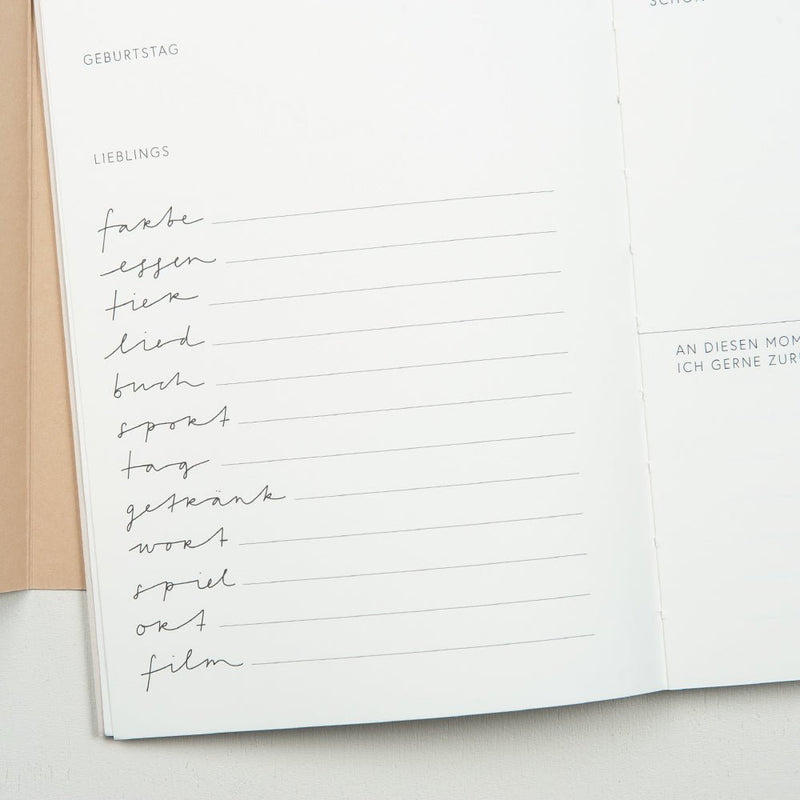 GEBURTSTAG
LIEBLINGS
farbe
essen
tier
lied
buch
sport
tag
getränk
wort
spiel
ort
film
AN DIESEN
ICH GERNE